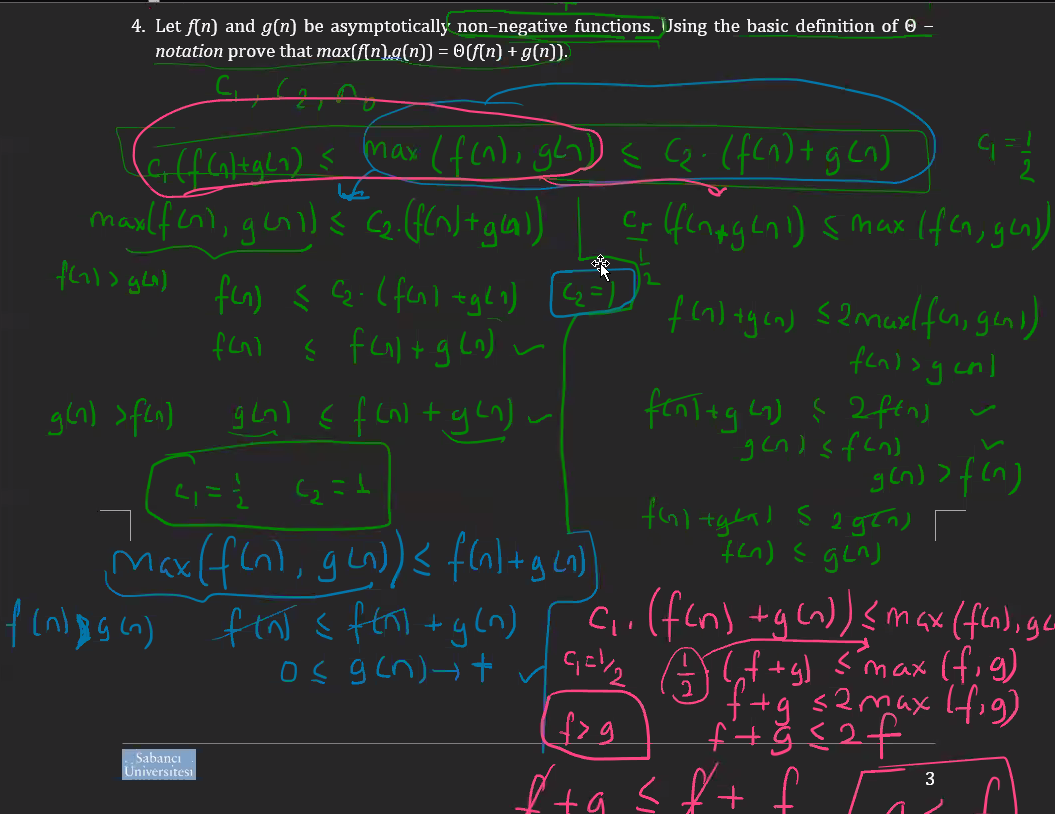 4. Let f(n) and g(n) be asymptotically non–negative functions. Using the basic definition of Θ –
notation prove that max(f(n),g(n)) = Θ(f(n) + g(n)).
C₁, C₂, n₀
C₁(f(n)+g(n)) ≤ max (f(n), g(n)) ≤ C₂. (f(n)+g(n))
C₁ = 1/2
max(f(n), g(n)) ≤ C₂.(f(n)+g(n))
C₁ (f(n+g(n)) ≤ max (f(n, g(n))
1/2
f(n) > g(n)
f(n) ≤ C₂. (f(n) +g(n))
C₂ = 1
f(n) ≤ f(n) + g(n) ✓
f(n) +g(n) ≤ 2max(f(n, g(n))
f(n) > g(n)
g(n) > f(n) g(n) ≤ f(n) + g(n) ✓
f(n) +g(n) ≤ 2f(n) ✓
g(n) ≤ f(n) ✓
C₁ = 1/2 C₂ = 1
g(n) > f(n)
f(n) +g(n) ≤ 2g(n)
f(n) ≤ g(n)
max(f(n), g(n)) ≤ f(n)+g(n)
f(n) > g(n) f(n) ≤ f(n) + g(n)
0 ≤ g(n) → + ✓
C₁. (f(n) +g(n)) ≤ max(f(n), g(
C₁=1/2 1/2 (f+g) ≤ max (f,g)
f+g ≤ 2max (f,g)
f > g f+g ≤ 2f
f+g ≤ f + f
Sabancı
Üniversitesi
3